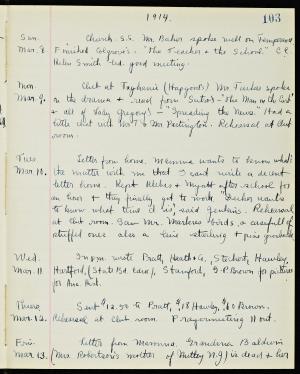 1914.
103
Sun. Church. S.S. Mr. Baker spoke well on Temperance
Mar. 8. Finished Colgrove's "The Teacher & the School." C.E.
Helen Smith led. good meeting.
Mon. Club at (Hapgood's) Mr. spoke
Mar. 9. on the drama & read from "The Man on the Curb"
& all of Lady Gregory's - "Spreading the News." Had a
little chat with Mr. & Mrs. Rehearsal at Club
room.
Tues. Letter from home. Mamma wants to know what's
Mar. 10. the matter with me that I can't write a decent
letter home. Kept & after school for
an hour & they finally got to work.
to know what time it is, said Jenkins. Rehearsal
at Club room. Saw Mr. birds, a case full of
stuffed ones also a live starling & pine grosbeak.
Wed. In P.M. wrote Pratt, Heath Co., Stechert, Hawley,
Mar. 11. Hartford, (State Bd. Educ), Stamford, G. P. Brown for pictures
for
Thurs. Sent $12.50 to Pratt, $18 Hawley, Brown.
Mar. 12. Rehearsal at Club room. Prayermeeting 11 out.
Fri. Letter from Mamma. Grandma Baldwin
Mar. 13. (Mrs. Robertson's mother of Nutley N.J) is dead & her